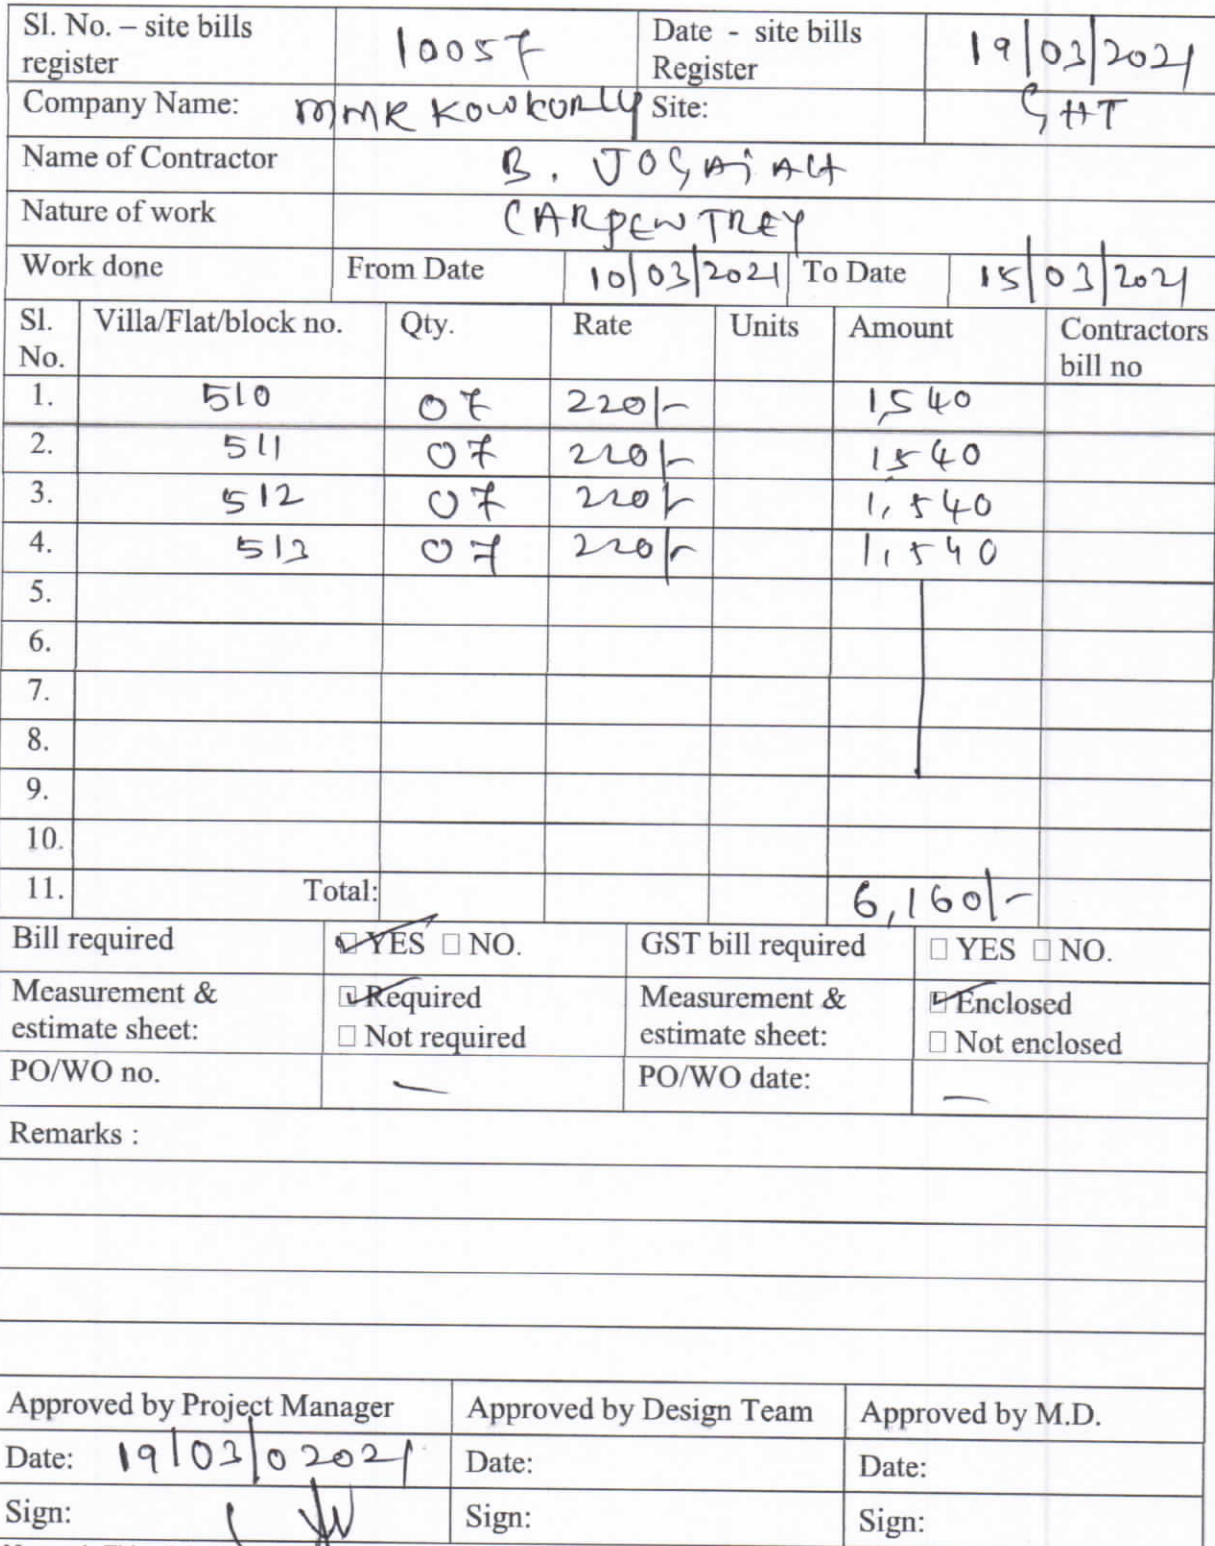 Sl. No. – site bills register 10057 Date - site bills Register 19/03/2021
Company Name: MMR KOWKURLY Site: GHT
Name of Contractor B. JOGAiAH
Nature of work CARPENTREY
Work done From Date 10/03/2021 To Date 15/03/2021
Sl. No. Villa/Flat/block no. Qty. Rate Units Amount Contractors bill no
1. 510 07 220/- 1,540
2. 511 07 220/- 1540
3. 512 07 220/- 1,540
4. 513 07 220/- 1,540
5.
6.
7.
8.
9.
10.
11. Total: 6,160/-
Bill required ☑ YES ☐ NO. GST bill required ☐ YES ☐ NO.
Measurement & estimate sheet: ☑ Required ☐ Not required Measurement & estimate sheet: ☑ Enclosed ☐ Not enclosed
PO/WO no. — PO/WO date: —
Remarks :
Approved by Project Manager Approved by Design Team Approved by M.D.
Date: 19/03/02021 Date: Date:
Sign: Sign: Sign: